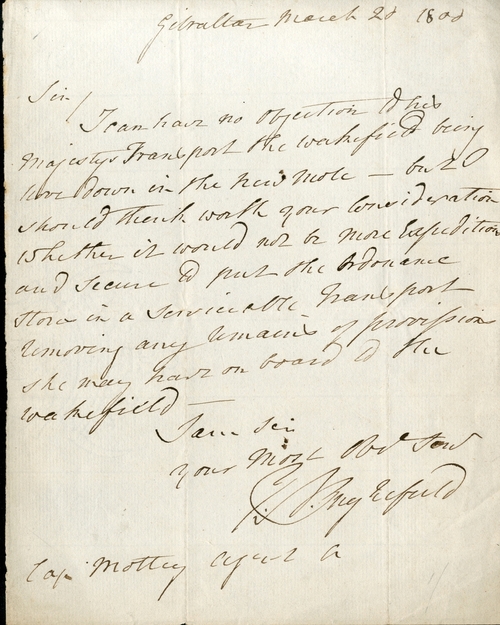 Gibraltar March 2d 1800
Sir /
I can have no Objection to his
Majestys Transport the Wakefield being
hove down in the New Mole — but I
should think worth your Consideration
whether it would not be more Expeditious
and Secure to put the Ordnance
Store in a Serviceable Transport
removing any remains of provission
she may have on board to the
Wakefield —
I am Sir
your Most Obdt Serv
Inglefield
Cap Mottley agent